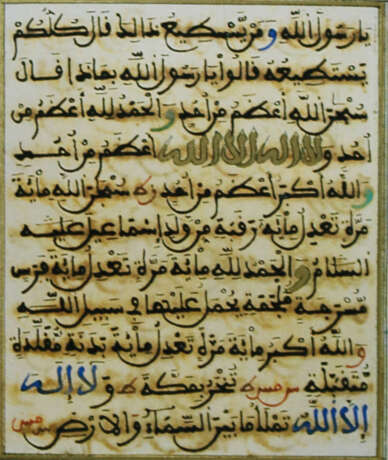 يا رسول الله ومن يستطيع ذالك قال كلكم
يستطيعه قالوا يا رسول الله بماذا قال
سبحن الله أعظم من أحد والحمد لله أعظم من
أحد ولا إله إلا الله أعظم من أحد
والله أكبر أعظم من أحد سبحن الله مائة
مرة تعدل مائة رقبة من ولد إسماعيل عليه
السلام والحمد لله مائة مرة تعدل مائة فرس
مسرجة ملجمة يحمل عليها في سبيل الله
والله أكبر مائة مرة تعدل مائة بدنة مقلدة
متقبلة تنحر بمكة ولا إله
إلا الله تملأ ما بين السماء والارض